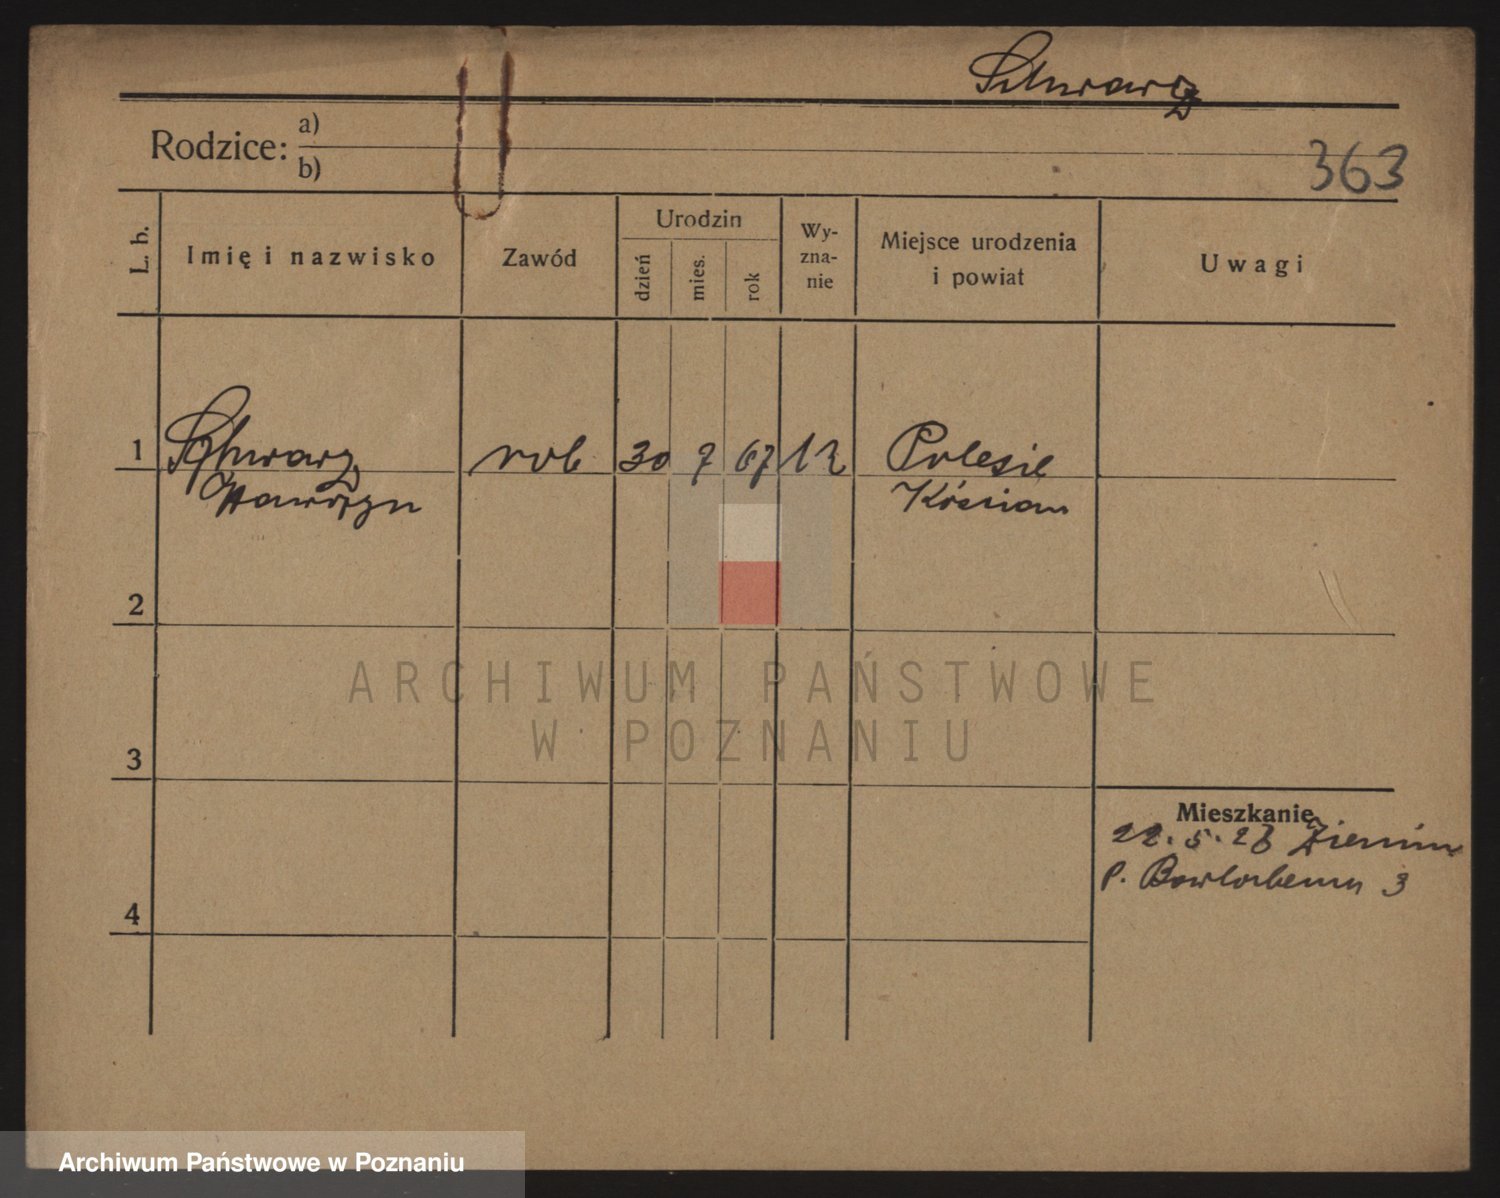 Schwarz
Rodzice: a)
b)
363
L. b.
Imię i nazwisko
Zawód
Urodzin
dzień
mies.
rok
Wy-
zna-
nie
Miejsce urodzenia
i powiat
Uwagi
1 Schwarz rob 30 7 67
Wawrzyn Kościan
2
ARCHIWUM PAŃSTWOWE
W POZNANIU
3
Mieszkanie
22.5.26
p. 3
4
Archiwum Państwowe w Poznaniu